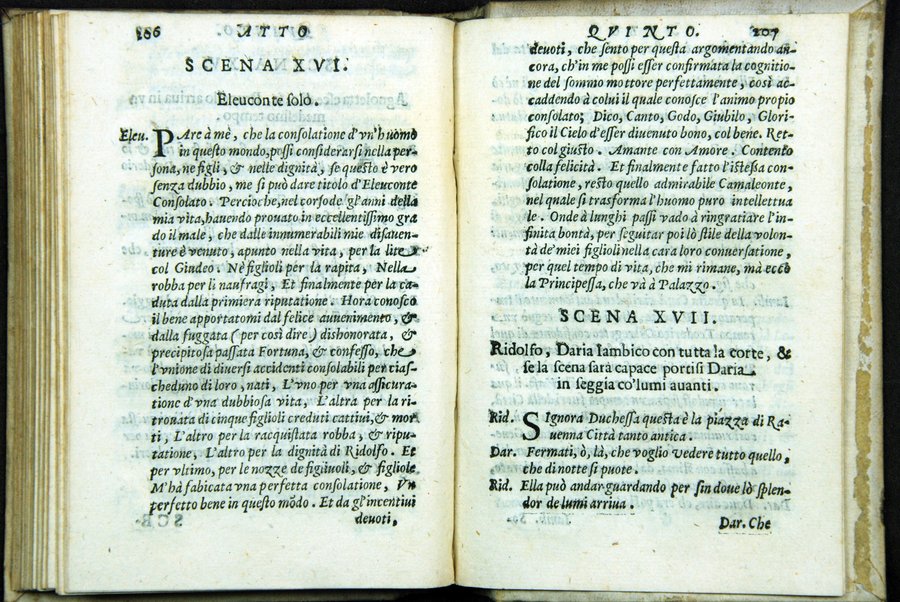 166 ATTO
SCENA XVII.
Eleuconte solo.
Eleu. PAre à mè, che la consolatione d'vn'huomo
in questo mondo, possi considerarsi nella per-
sona, ne figli, & nelle dignità, se questo è vero
senza dubbio, me si può dare titolo d'Eleuconte
Consolato. Percioche, nel corso de gl'anni della
mia vita, hauendo prouato in eccellentissimo gra
do il male, che dalle innumerabili mie disauen-
ture è venuto, apunto nella vita, per la lite
col Giudeo. Nè figlioli per la rapita, Nella
robba per li naufragi, Et finalmente per la ca-
duta dalla primiera riputatione. Hora conosco
il bene apportatomi dal felice auuenimento, &
dalla fuggata (per così dire) dishonorata, &
precipitosa passata Fortuna, & confesso, che
l'vnione di diuersi accidenti consolabili per cias-
cheduno di loro, nati, L'vno per vna assicura-
tione d'vna dubbiosa vita, L'altra per la ri-
trouata di cinque figlioli creduti cattiui, & mor
ti, L'altro per la racquistata robba, & ripu-
tatione, L'altro per la dignità di Ridolfo. Et
per vltimo, per le nozze de figiuoli, & figliole
M'hà fabicata vna perfetta consolatione, Vn
perfetto bene in questo mõdo. Et da gl'incentiui
SCE- deuoti,
QVINTO. 207
deuoti, che sento per questa argomentando an-
cora, ch'in me possi esser confirmata la cognitio-
ne del sommo mottore perfettamente, così ac-
caddendo à colui il quale conosce l'animo proprio
consolato; Dico, Canto, Godo, Giubilo, Glori-
fico il Cielo d'esser diuenuto bono, col bene. Ret-
to col giusto. Amante con Amore. Contento
colla felicità. Et finalmente fatto l'istessa con-
solatione, resto quello admirabile Camaleonte,
nel quale si trasforma l'huomo puro intellettua
le. Onde à lunghi passi vado à ringratiare l'in-
finita bontà, per seguitar poi lo stile della volon-
tà de' miei figlioli nella cara loro conuersatione,
per quel tempo di vita, che mi rimane, mà ecco
la Principessa, che và à Palazzo.
SCENA XVII.
Ridolfo, Daria Iambico con tutta la corte, &
se la scena sarà capace portisi Daria
in seggia co'lumi auanti.
Rid. SIgnora Duchessa questa è la piazza di Ra-
uenna Città tanto antica.
Dar. Fermati, ò, là, che voglio vedere tutto quello,
che di notte si puote.
Rid. Ella può andar guardando per sin doue lo splen-
dor de lumi arriua.
Dar. Che